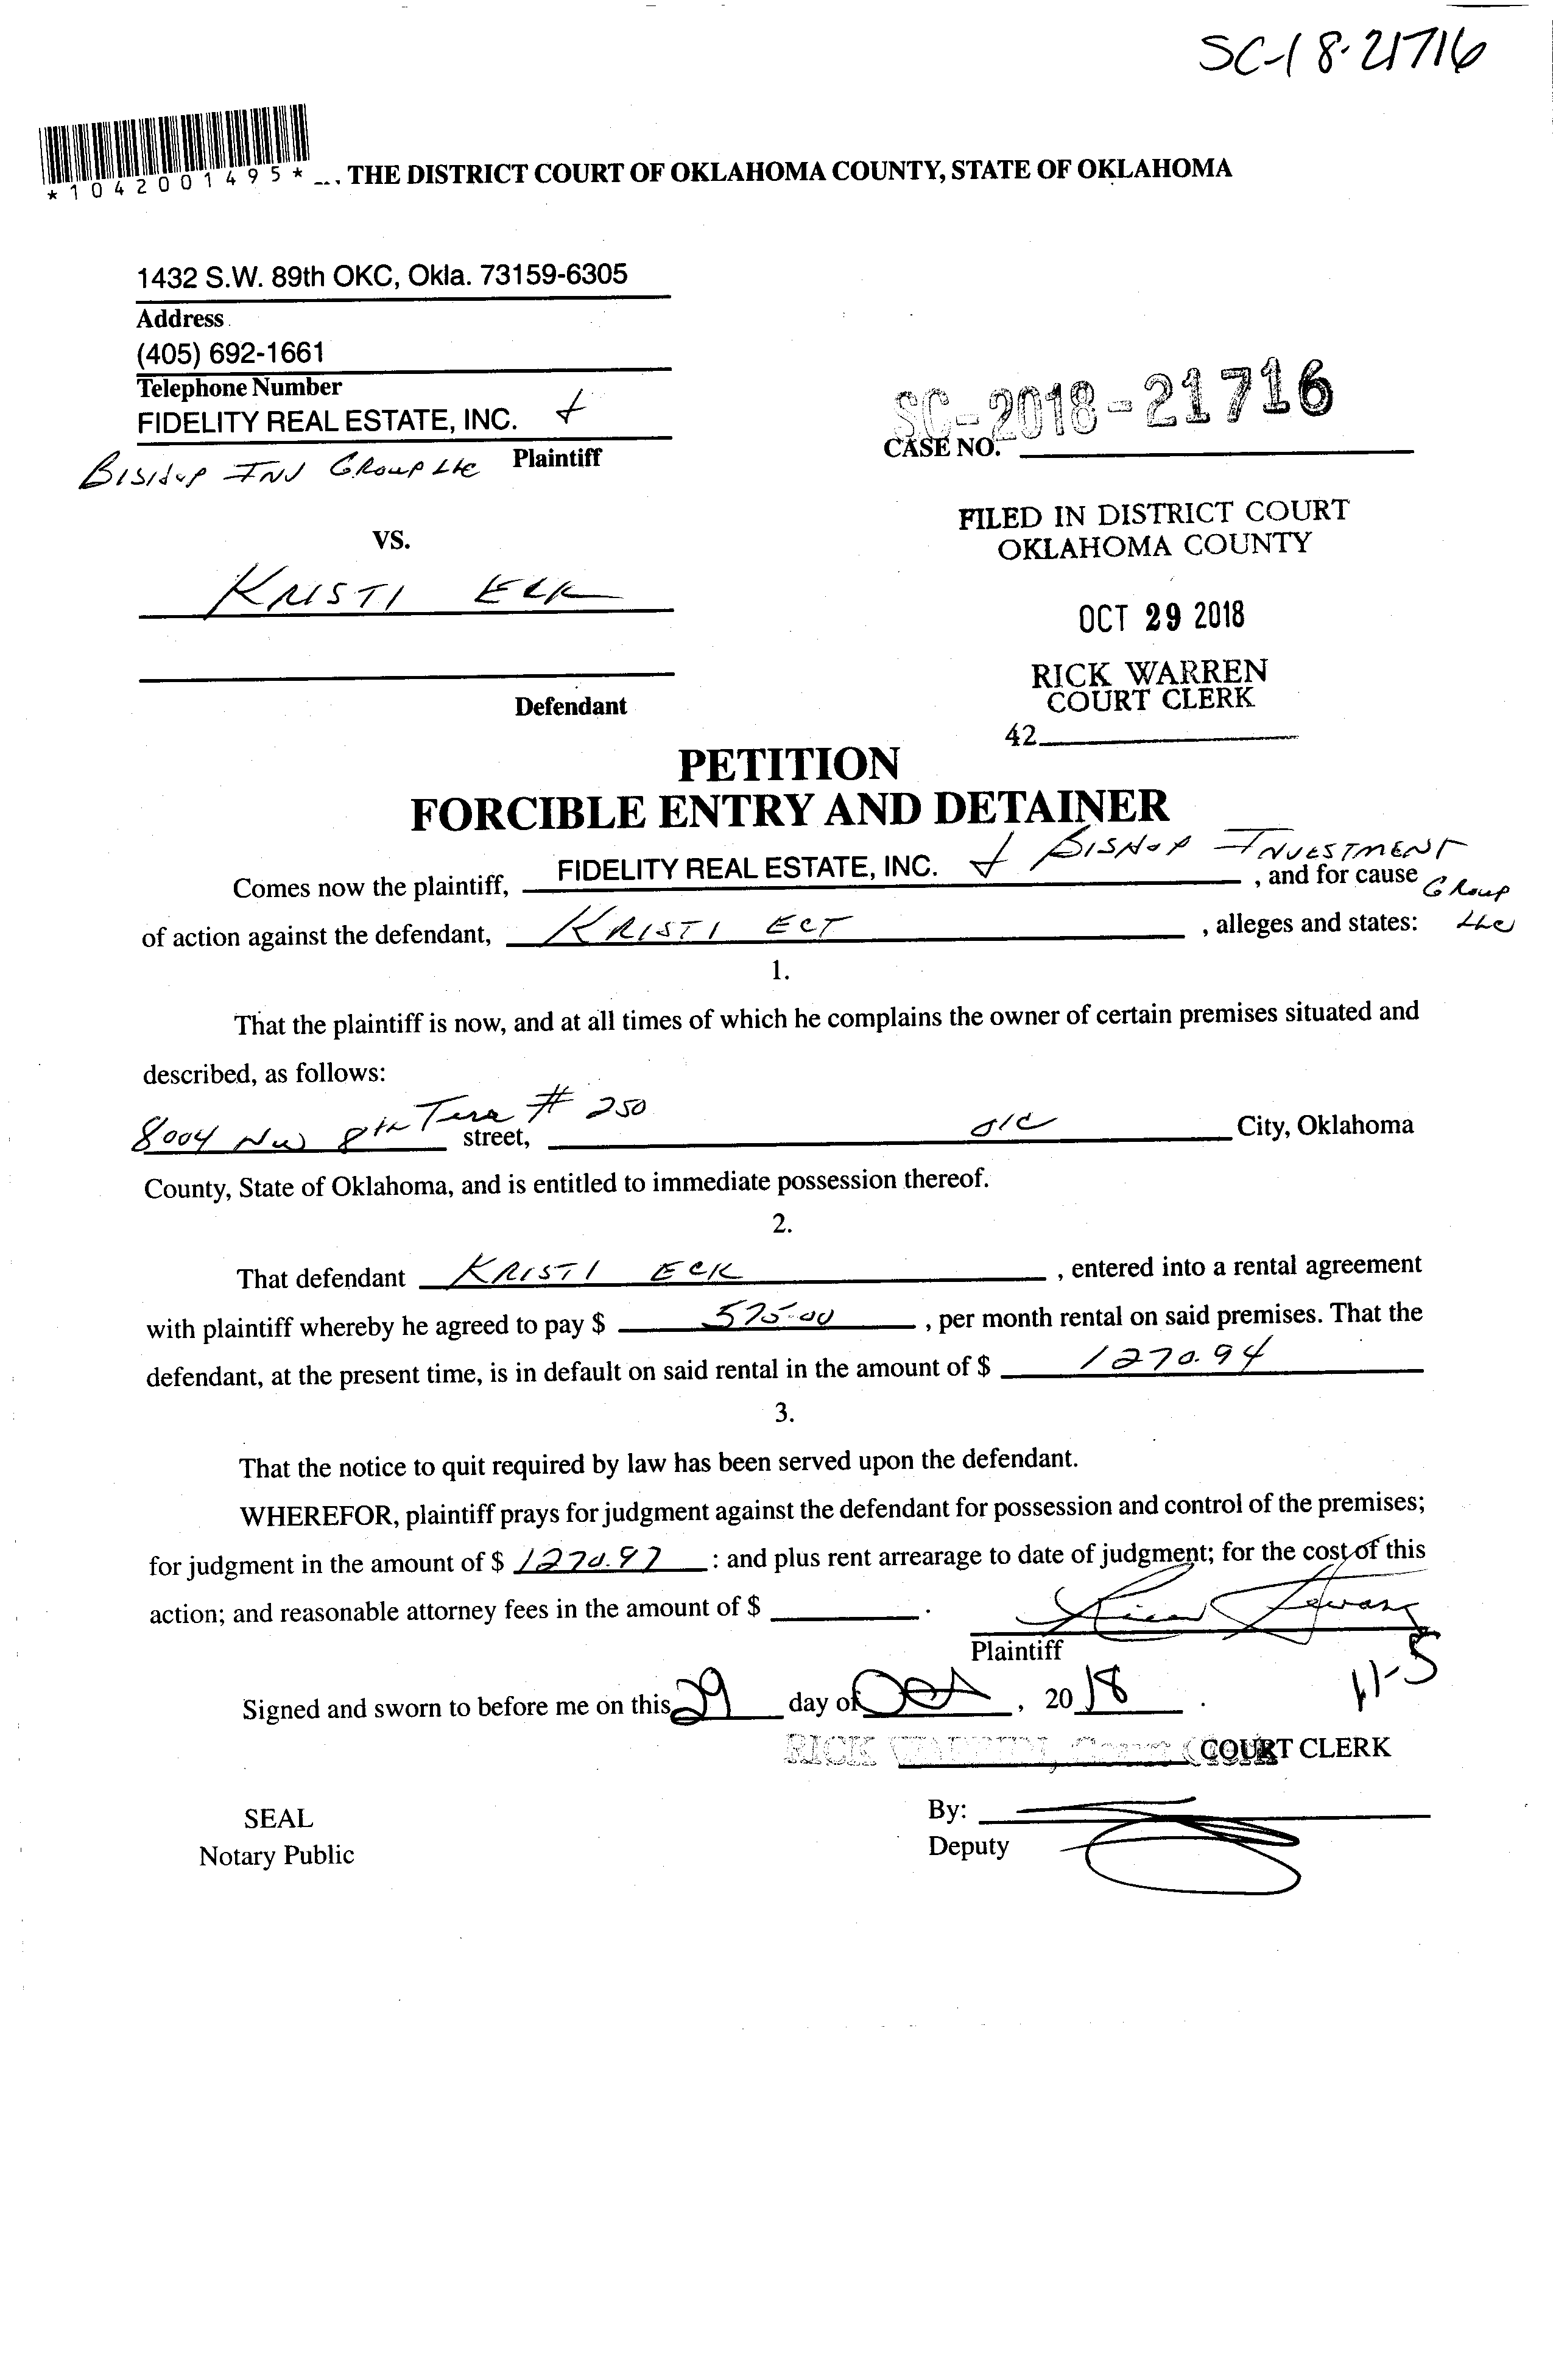 SC-18-21716
*1042001495* THE DISTRICT COURT OF OKLAHOMA COUNTY, STATE OF OKLAHOMA
1432 S.W. 89th OKC, Okla. 73159-6305
Address
(405) 692-1661
Telephone Number
FIDELITY REAL ESTATE, INC. &
Bishop Inv Group LLC Plaintiff
SC-2018-21716
CASE NO.
FILED IN DISTRICT COURT
OKLAHOMA COUNTY
OCT 29 2018
RICK WARREN
COURT CLERK
42
VS.
KRISTI ECK
Defendant
PETITION
FORCIBLE ENTRY AND DETAINER
Comes now the plaintiff, FIDELITY REAL ESTATE, INC. & BISHOP INVESTMENT, and for cause Group
of action against the defendant, KRISTI ECT, alleges and states: LLC
1.
That the plaintiff is now, and at all times of which he complains the owner of certain premises situated and
described, as follows:
8004 NW 8th Terr # 250 street, OKC City, Oklahoma
County, State of Oklahoma, and is entitled to immediate possession thereof.
2.
That defendant KRISTI ECK, entered into a rental agreement
with plaintiff whereby he agreed to pay $ 575.00, per month rental on said premises. That the
defendant, at the present time, is in default on said rental in the amount of $ 1270.94
3.
That the notice to quit required by law has been served upon the defendant.
WHEREFOR, plaintiff prays for judgment against the defendant for possession and control of the premises;
for judgment in the amount of $ 1270.97 : and plus rent arrearage to date of judgment; for the cost of this
action; and reasonable attorney fees in the amount of $ .
Plaintiff
11-5
Signed and sworn to before me on this 29 day of Oct, 2018.
RICK WARREN, Court Clerk COURT CLERK
SEAL
Notary Public
By:
Deputy